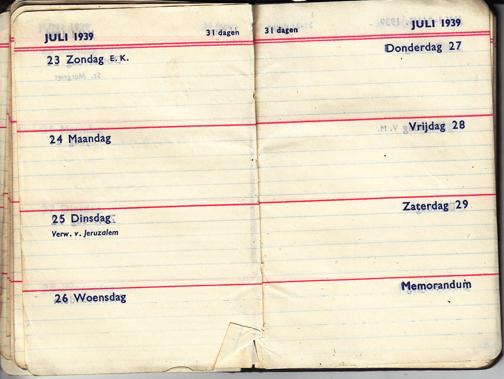 JULI 1939 31 dagen
23 Zondag E. K.
24 Maandag
25 Dinsdag
Verw. v. Jeruzalem
26 Woensdag
31 dagen JULI 1939
Donderdag 27
Vrijdag 28
Zaterdag 29
Memorandum